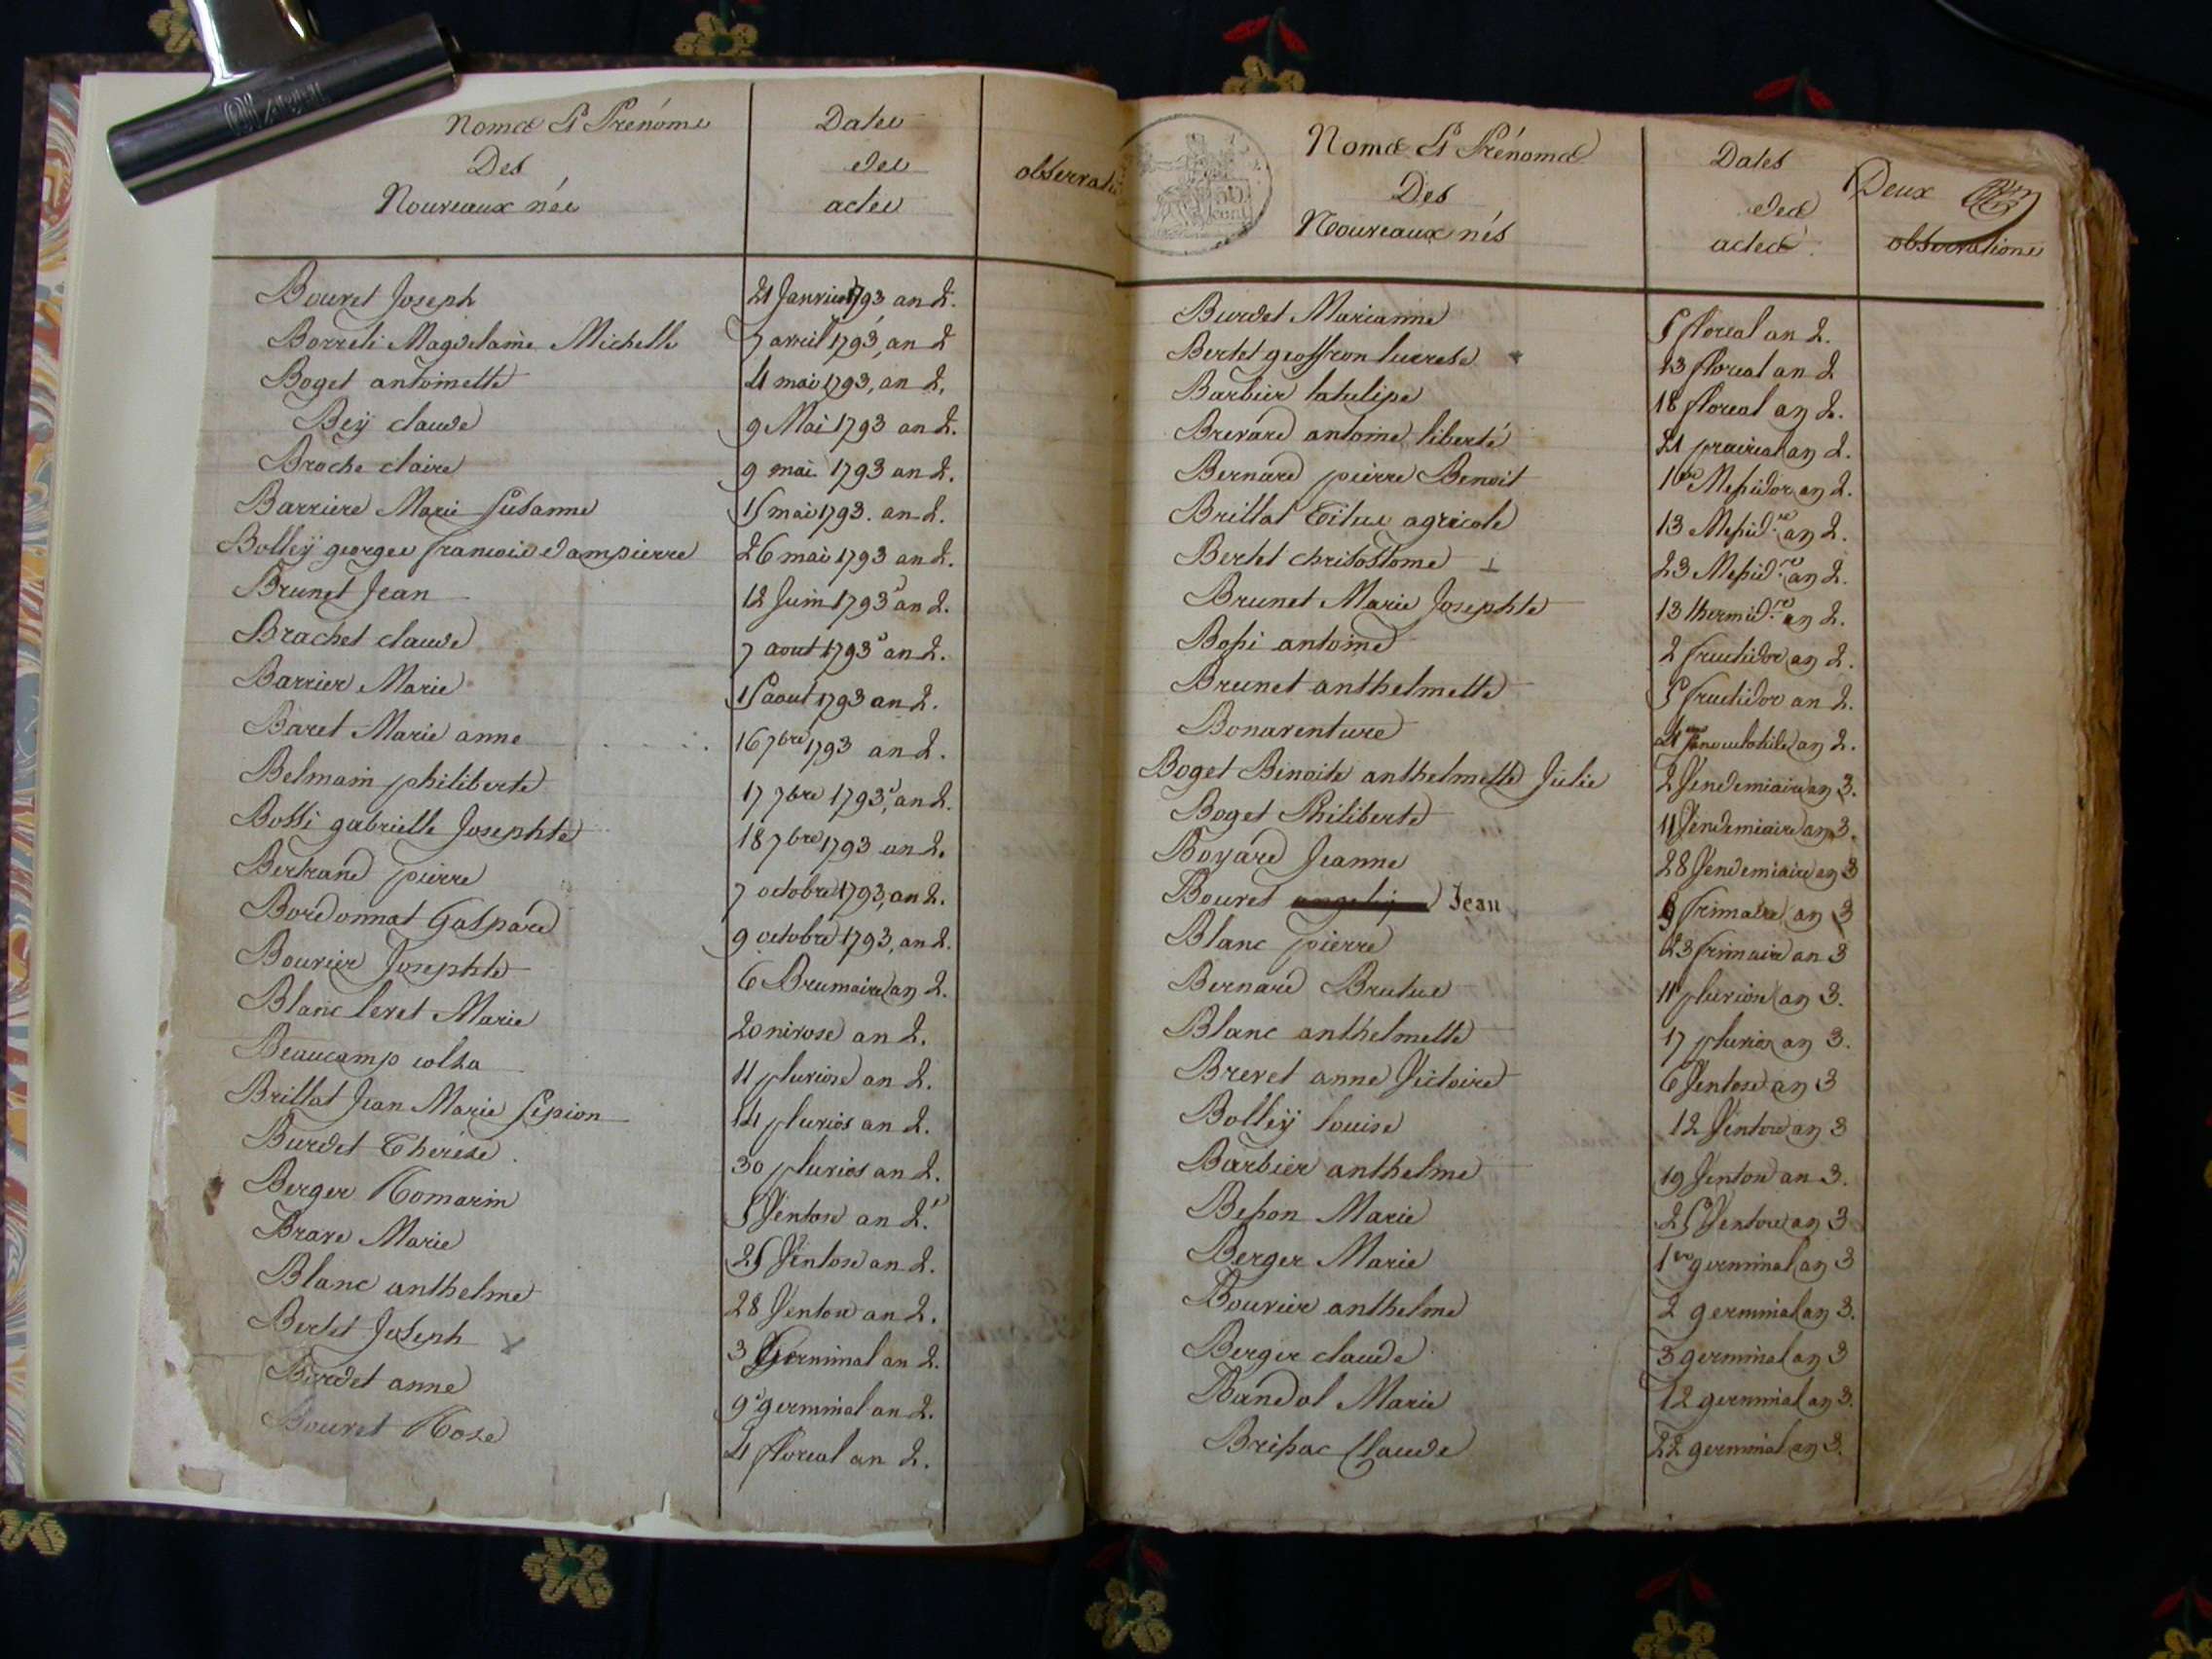 Noms Et Prénoms
Des
Nouveaux nés
Dates
des
actes
observati
Bouvet Joseph 21 Janvier 1793 an 2.
Borreli Magdelaine Michelle 7 avril 1793, an 2
Boget antoinette 4 mai 1793, an 2.
Bey claude 9 Mai 1793 an 2.
Broche claire 9 mai 1793 an 2.
Barriere Marie Susanne 15 mai 1793. an 2.
Bolley georges francois dampierre 26 mai 1793 an 2.
Brunet Jean 12 Juin 1793 an 2.
Brachet claude 7 aout 1793 an 2.
Barrier Marie 15 aout 1793 an 2.
Baret Marie anne 16 7bre 1793 an 2.
Belmain philiberte 17 7bre 1793, an 2.
Bossi gabrielle Josephte 18 7bre 1793 an 2.
Bertrand pierre 7 octobre 1793, an 2.
Bordonnat Gaspard 9 octobre 1793, an 2.
Bouvier Josephte 6 Brumaire an 2.
Blanc levet Marie 20 nivose an 2.
Beaucamp colsa 11 pluviose an 2.
Brillat Jean Marie Sipion 14 pluvios an 2.
Burdet Therése 30 pluvios an 2.
Berger Romarin 5 Ventose an 2.
Brave Marie 25 Ventose an 2.
Blanc anthelme 28 Ventose an 2.
Bertet Joseph x 3 Germinal an 2.
Burdet anne 9 germinal an 2.
Bouvet Rose 4 floreal an 2.
Noms Et Prénoms
Des
Nouveaux nés
Dates
des
actes
Deux
observations
Burdet Marianne 5 floreal an 2.
Bertet geoffron lucrese 13 floreal an 2
Barbier latulipe 18 floreal an 2.
Brevard antoine liberté 21 prairial an 2.
Bernard pierre Benoit 1er Messidor an 2.
Brillat Titus agricole 13 Messid.re an 2.
Bertet chrisostome 23 Messid.re an 2.
Brunet Marie Josephte 13 thermid.re an 2.
Bossi antoine 2 fructidor an 2.
Brunet anthelmette 5 fructidor an 2.
Bonaventure an 2.
Boget Benoite anthelmette Julie 2 Vendemiaire an 3.
Boget Philiberte 11 Vendemiaire an 3.
Boyard Jeanne 28 Vendemiaire an 3
Bouvet Jean frimaire an 3
Blanc pierre 23 frimaire an 3
Bernard Brutus 11 pluviose an 3.
Blanc anthelmette 17 pluvios an 3.
Brevet anne Victoire 6 Ventose an 3
Bolley louise 12 Ventose an 3
Barbier anthelme 19 Ventose an 3.
Besson Marie 25 Ventose an 3
Berger Marie 1er germinal an 3
Bouvier anthelme 2 germinal an 3.
Berger claude 3 germinal an 3
Bandol Marie 12 germinal an 3.
Brissac Claude 22 germinal an 3.